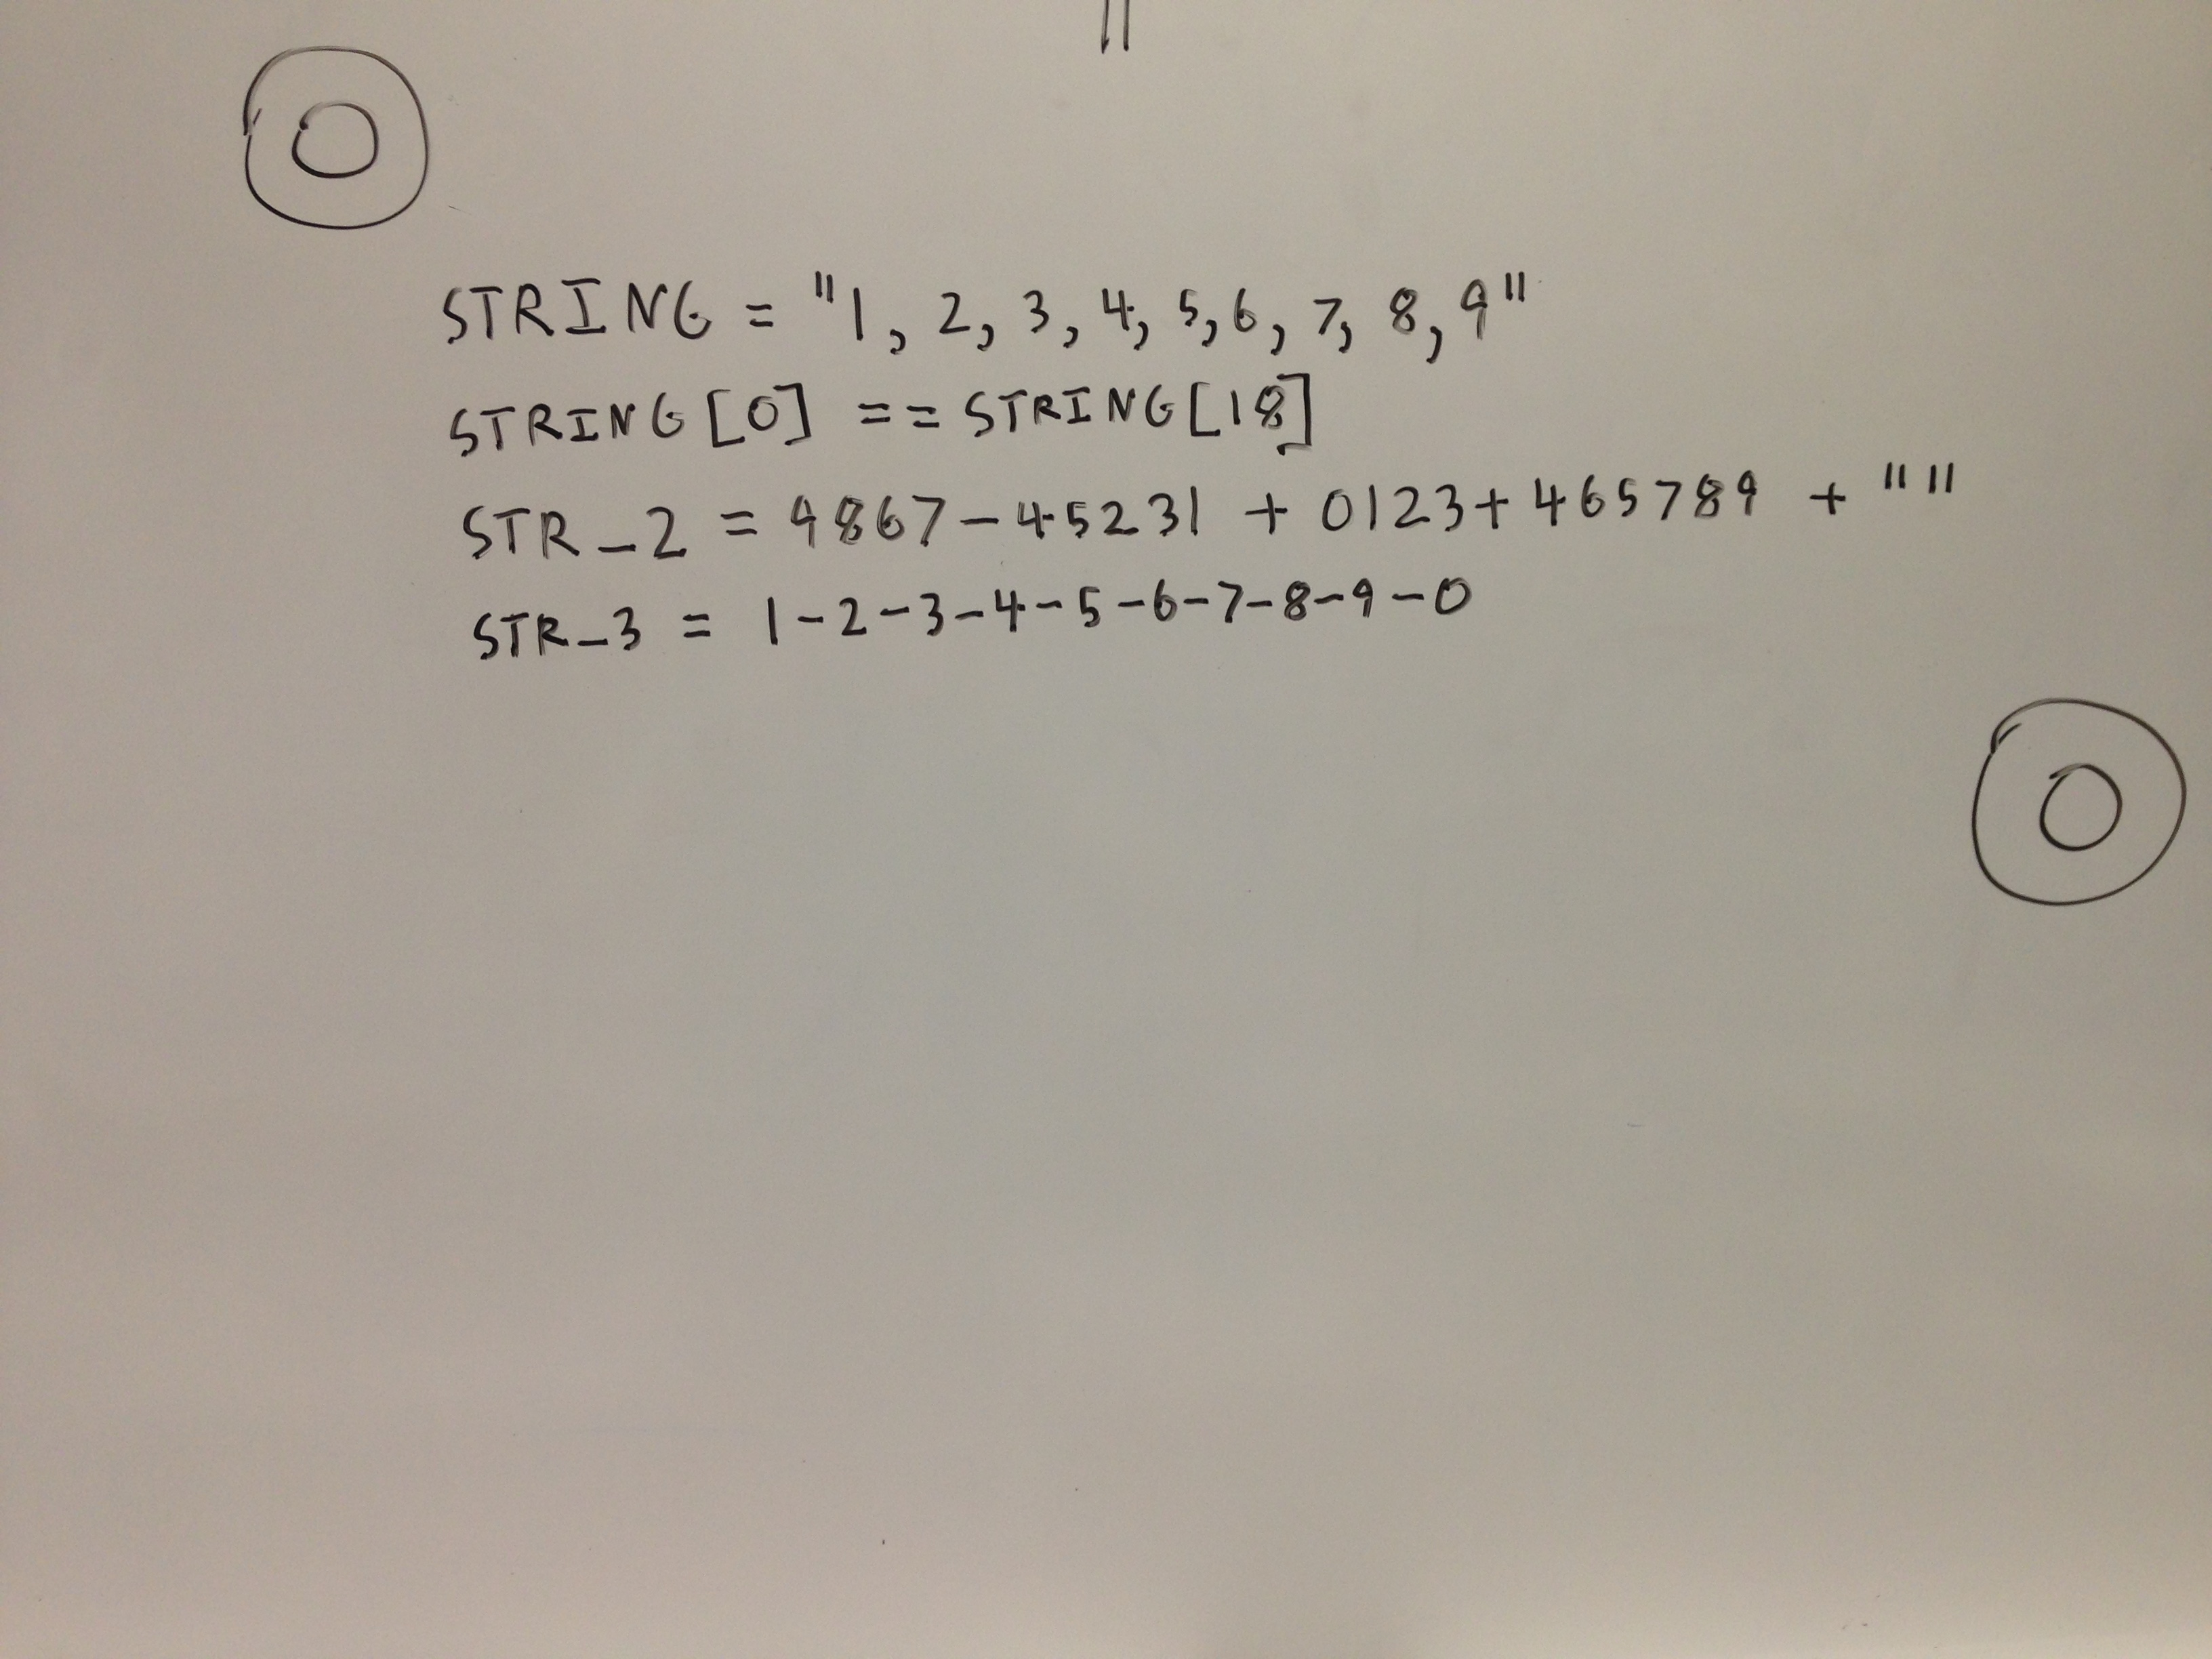 STRING = "1, 2, 3, 4, 5, 6, 7, 8, 9"
STRING[0] == STRING[18]
STR_2 = 9867-45231 + 0123+465789 + ""
STR_3 = 1-2-3-4-5-6-7-8-9-0